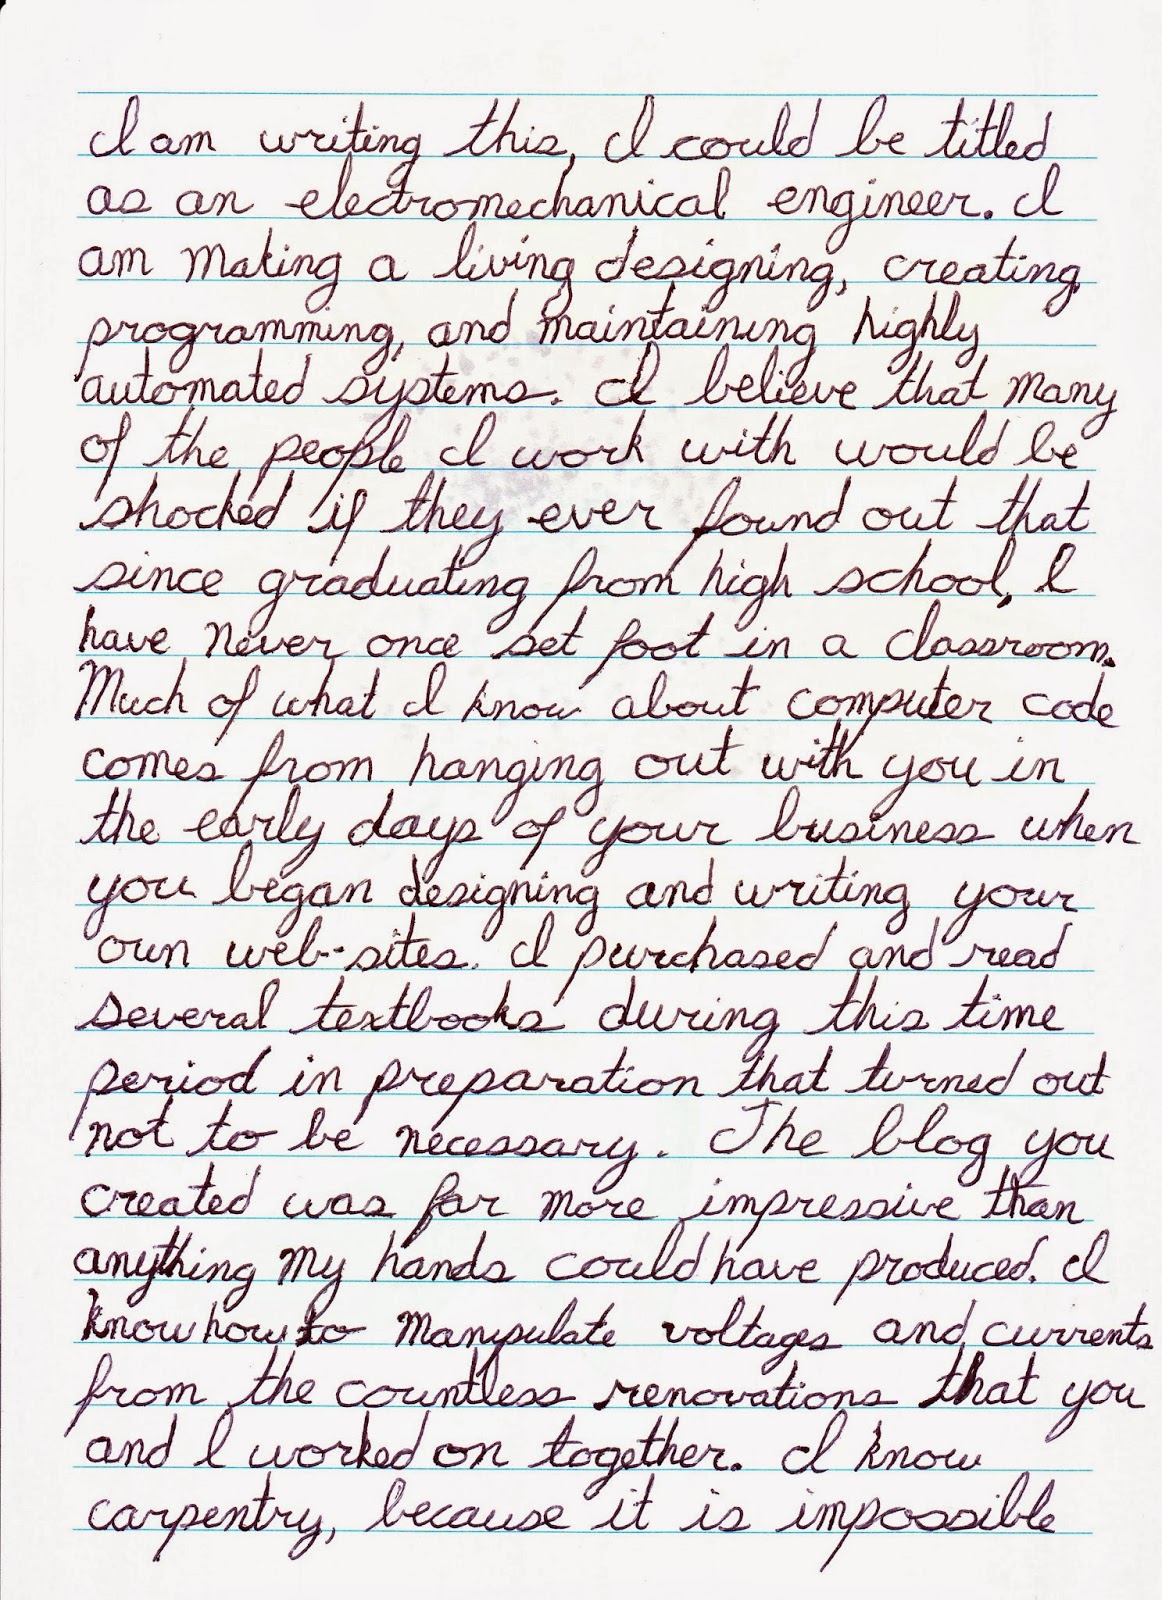 I am writing this, I could be titled
as an electromechanical engineer. I
am making a living designing, creating,
programming, and maintaining highly
automated systems. I believe that many
of the people I work with would be
shocked if they ever found out that
since graduating from high school, I
have never once set foot in a classroom.
Much of what I know about computer code
comes from hanging out with you in
the early days of your business when
you began designing and writing your
own web-sites. I purchased and read
several textbooks during this time
period in preparation that turned out
not to be necessary. The blog you
created was far more impressive than
anything my hands could have produced. I
know how to manipulate voltages and currents
from the countless renovations that you
and I worked on together. I know
carpentry, because it is impossible